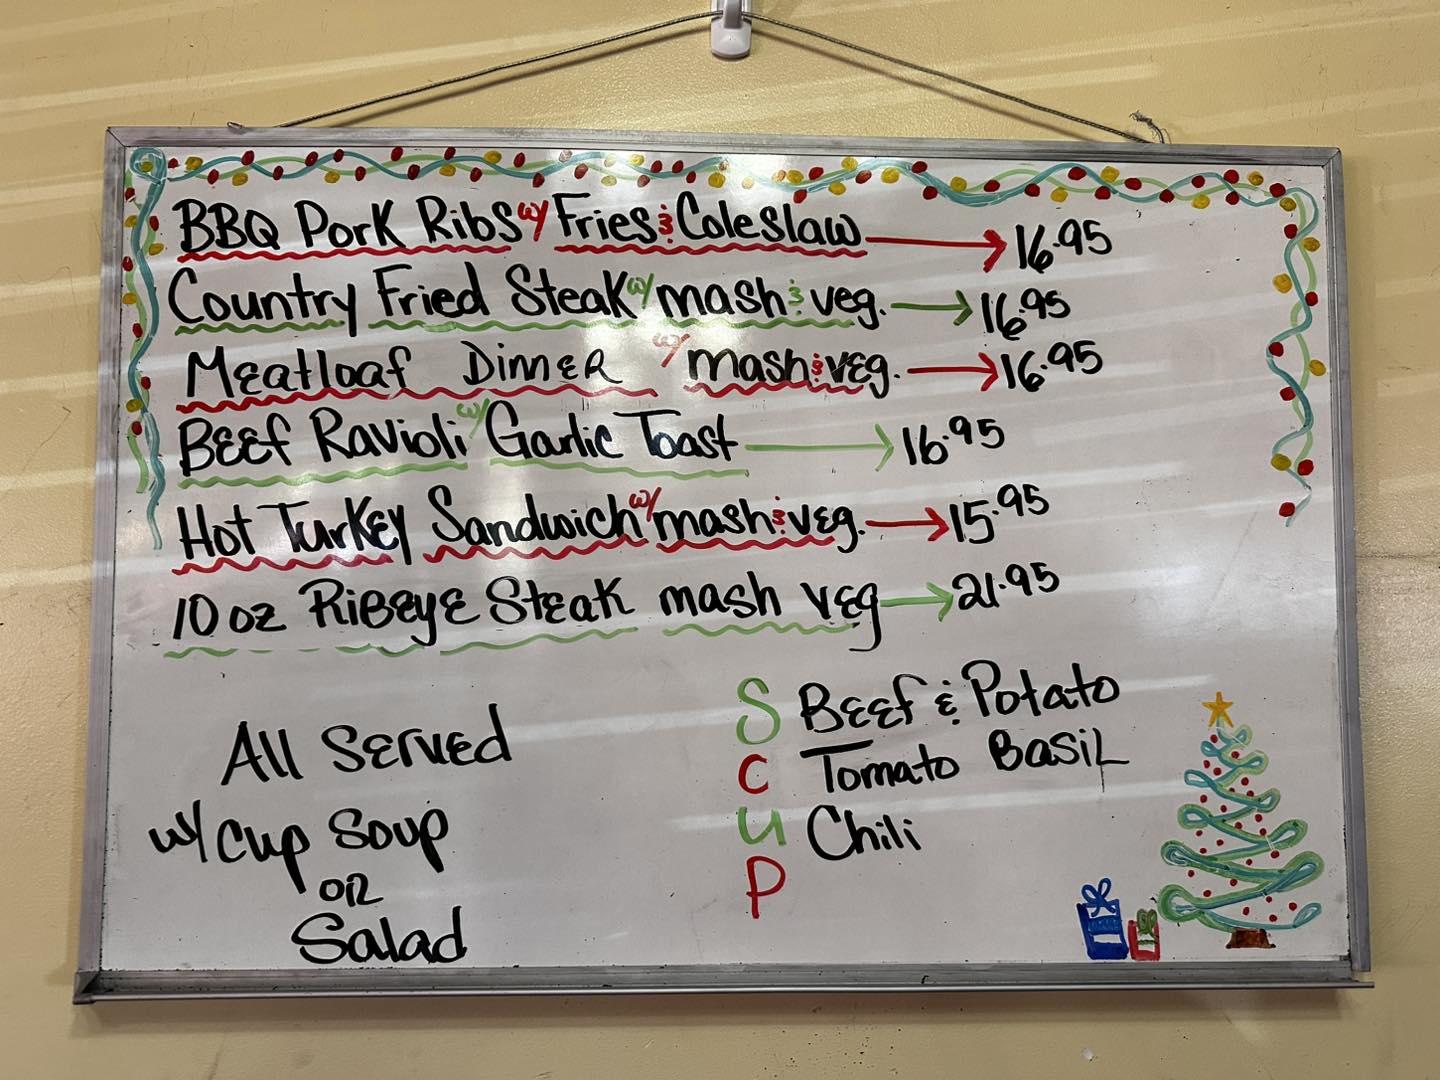 BBQ Pork Ribs w/ Fries & Coleslaw 16.95
Country Fried Steak w/ mash & veg. 16.95
Meatloaf Dinner w/ mash & veg. 16.95
Beef Ravioli w/ Garlic Toast 16.95
Hot Turkey Sandwich w/ mash & veg. 15.95
10 oz Ribeye Steak mash veg 21.95
All Served
w/ Cup Soup
or
Salad
S
C
U
P
Beef & Potato
Tomato Basil
Chili